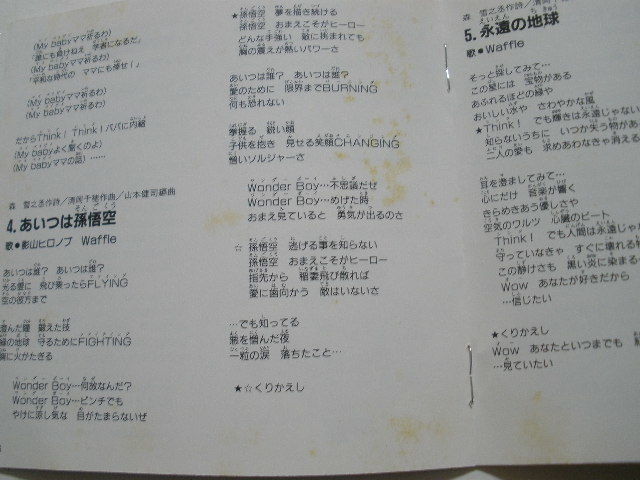 (My babyママ祈るわ)
「誰にも負けねえ 学者になるだ」
(My babyママ祈るわ)
「平和な時代の ママにも捧ぐ!」
(My babyママ祈るわ)
(My babyママ祈るわ)
だからThink! Think! パパに内緒
(My babyよく聞くのよ)
(My babyママの話) ……
森 雪之丞作詩/清岡千穂作曲/山本健司編曲
4. あいつは孫悟空
歌●影山ヒロノブ Waffle
あいつは誰? あいつは誰?
光る雲に 飛び乗ったらFLYING
空の彼方まで
澄んだ瞳 鍛えた技
緑の地球 守るためにFIGHTING
胸に火がたぎる
Wonder Boy…何故なんだ?
Wonder Boy…ピンチでも
やけに涼し気な 目がたまらないぜ
★孫悟空 夢を描き続ける
孫悟空 おまえこそがヒーロー
どんな手強い 敵に挑まれても
胸の震えが熱いパワーさ
あいつは誰? あいつは誰?
愛のために 限界までBURNING
何も恐れない
掌握る 鋭い眼
子供を抱き 見せる笑顔CHANGING
憎いソルジャーさ
Wonder Boy…不思議だぜ
Wonder Boy…めげた時
おまえ見ていると 勇気が出るのさ
☆孫悟空 逃げる事を知らない
孫悟空 おまえこそがヒーロー
指先から 稲妻飛び散れば
愛に歯向かう 敵はいないさ
…でも知ってる
悪を憎んだ夜
一粒の涙 落ちたこと…
★☆くりかえし
森 雪之丞作詩/清岡
5. 永遠の地球
歌●Waffle
そっと探してみて…
この星には 宝物がある
あふれるほどの緑や
おいしい水や さわやかな風
★Think! でも輝きは永遠じゃない
知らないうちに いつか失う物があ
二人の愛も 求めあわなきゃ消える
耳を澄ましてみて…
心にだけ 音楽が響く
きらめきあう優しさや
空気のワルツ 心臓のビート
Think! でも人間は永遠じゃ
守っていなきゃ すぐに壊れる
この静けさも 黒い炎に染まる
Wow あなたが好きだから
…信じたい
★くりかえし
Wow あなたといつまでも
…見ていたい